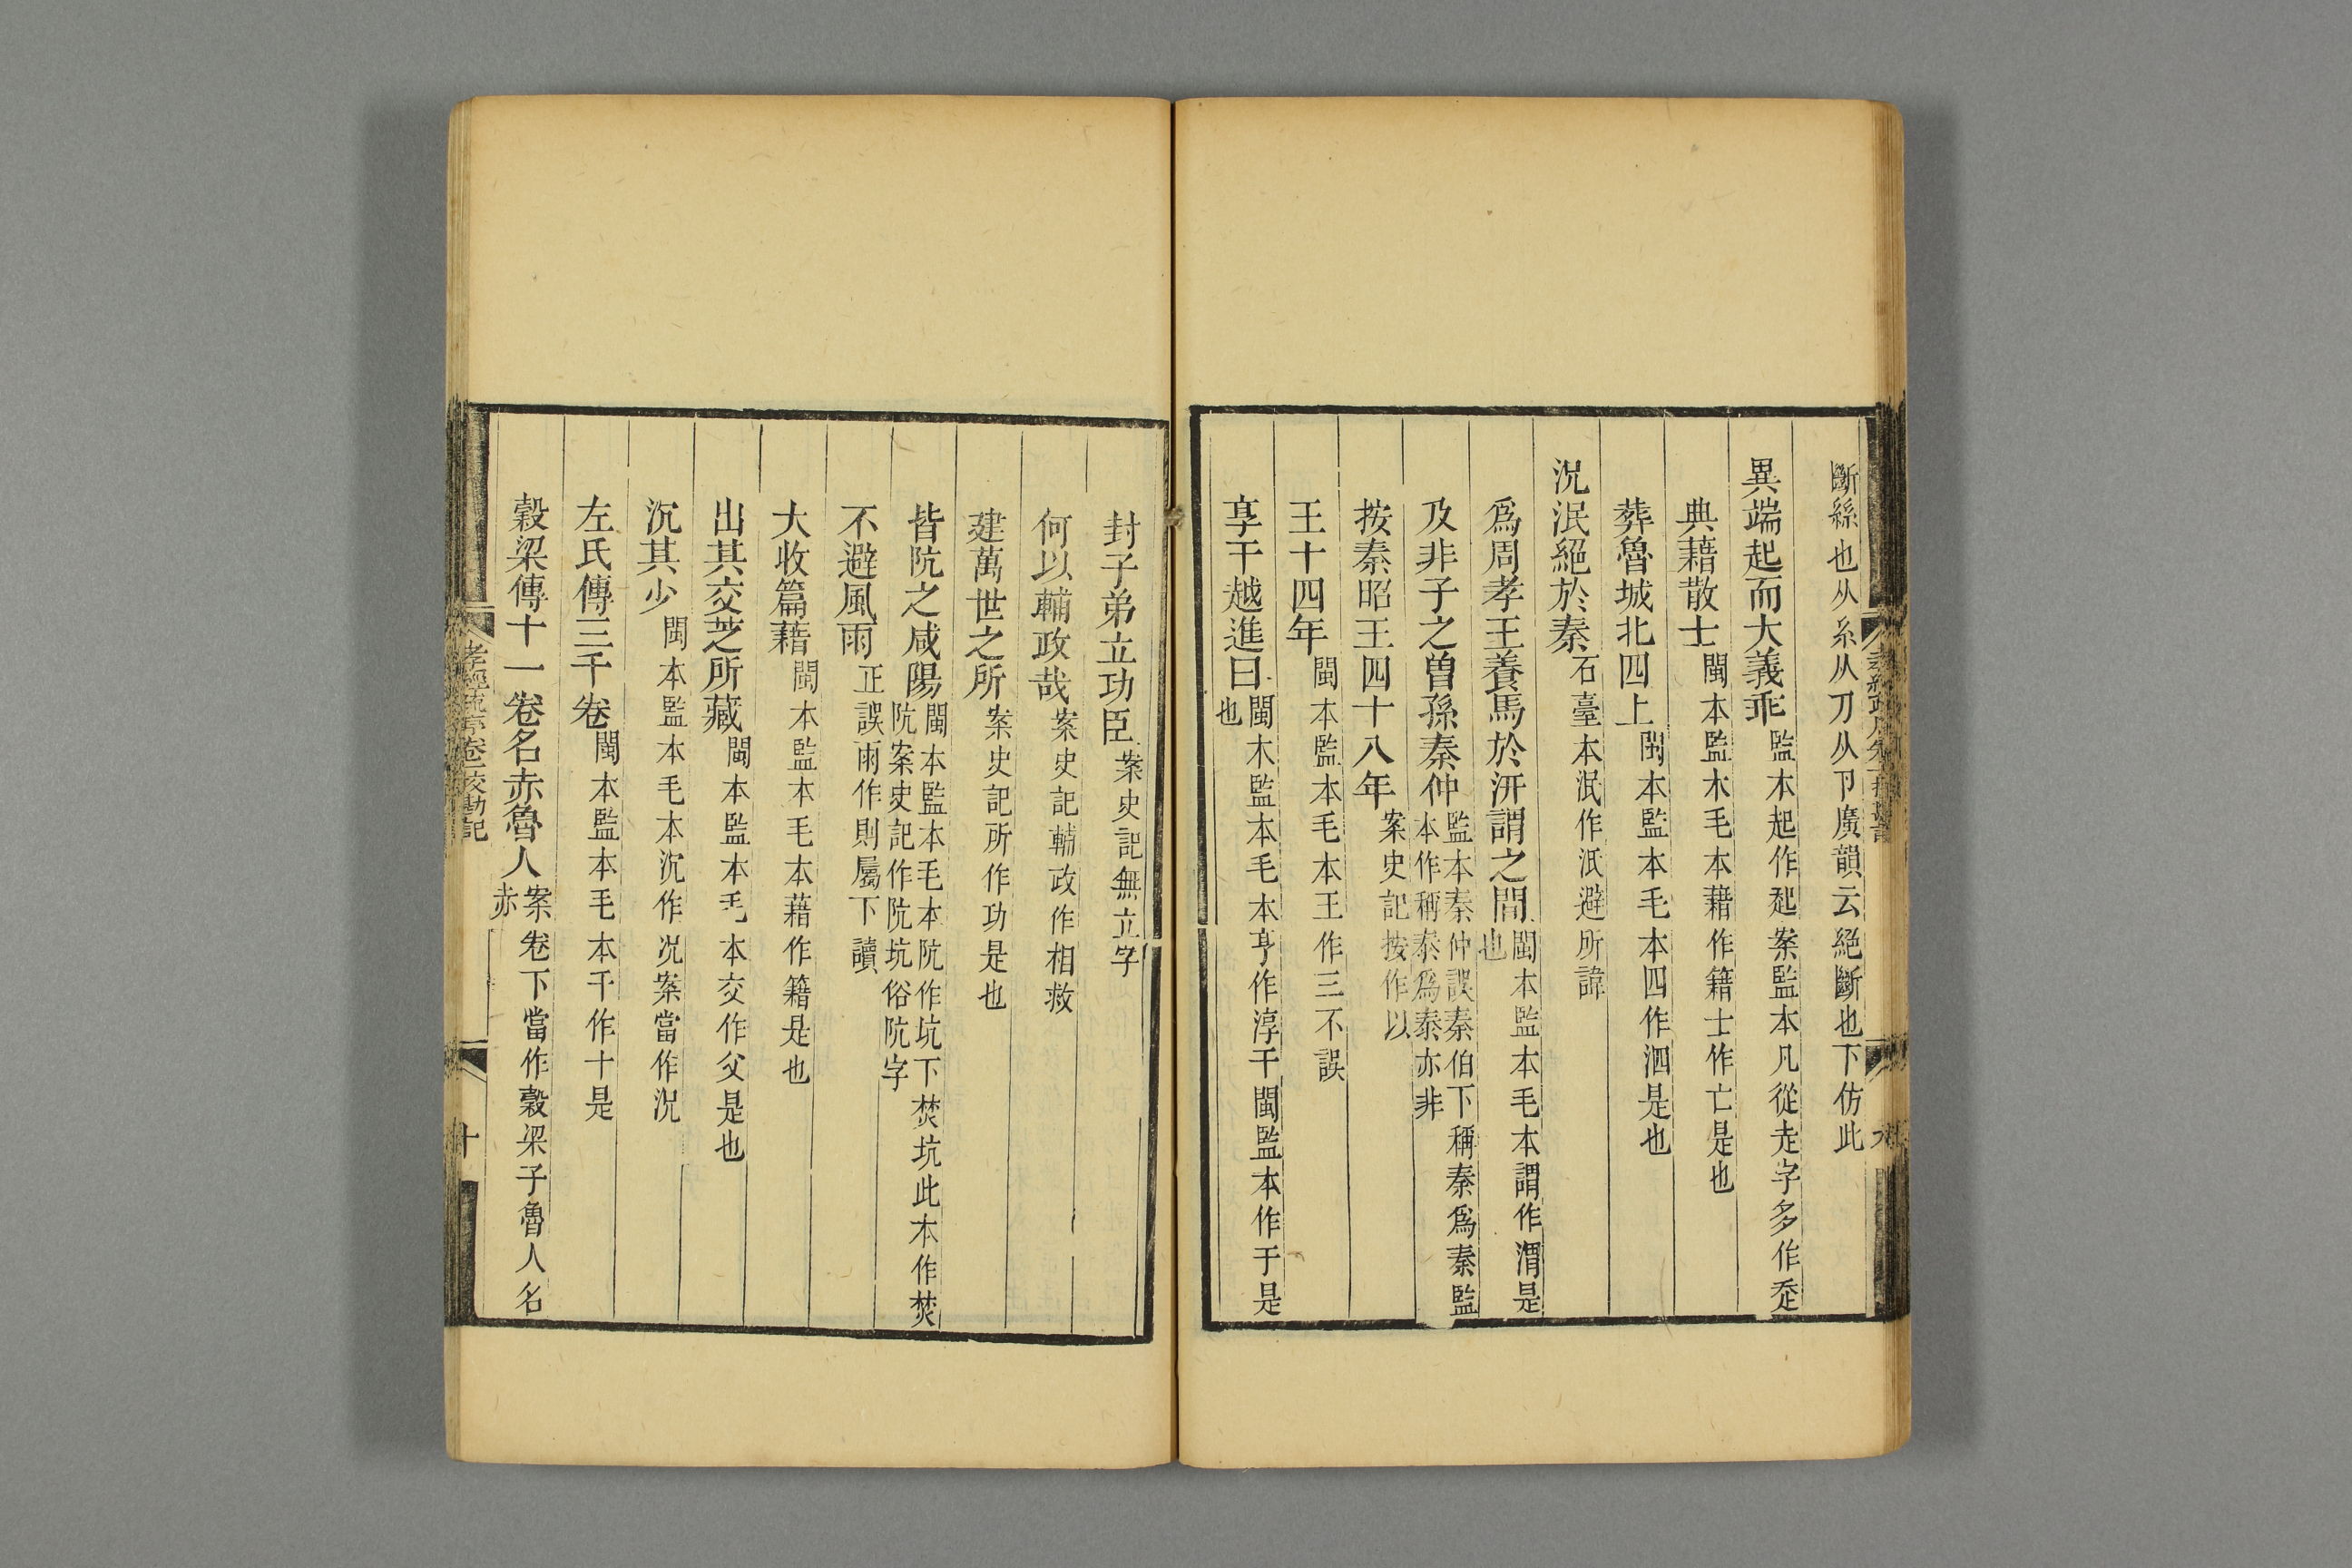 斷絲也从糸从刀从卩廣韻云絕斷也下仿此
異端起而大義乖監本起作起案監本凡從走字多作赱
典藉散士閩本監木毛本藉作籍士作亡是也
葬魯城北四上閩本監本毛本四作泗是也
況泯絕於秦石臺本泯作泜避所諱
爲周孝王養馬於汧謂之間閩本監本毛本謂作渭是也
及非子之曾孫秦仲監本秦仲誤秦伯下稱秦爲秦監本作稱泰爲泰亦非
按秦昭王四十八年案史記按作以
王十四年閩本監本毛本王作三不誤
享干越進曰閩木監本毛本享作淳干閩監本作于是也
封子弟立功臣案史記無立字
何以輔政哉案史記輔政作相救
建萬世之所案史記所作功是也
皆阬之咸陽閩本監本毛本阬作坑下焚坑此本作焚阬案史記作阬坑俗阬字
不避風雨正誤雨作則屬下讀
大收篇藉閩本監本毛本藉作籍是也
出其交芝所藏閩本監本毛本交作父是也
沉其少閩本監本毛本沉作况案當作況
左氏傳三千卷閩本監本毛本千作十是
穀梁傳十一卷名赤魯人案卷下當作穀梁子魯人名赤
孝經疏序卷一校勘記
十